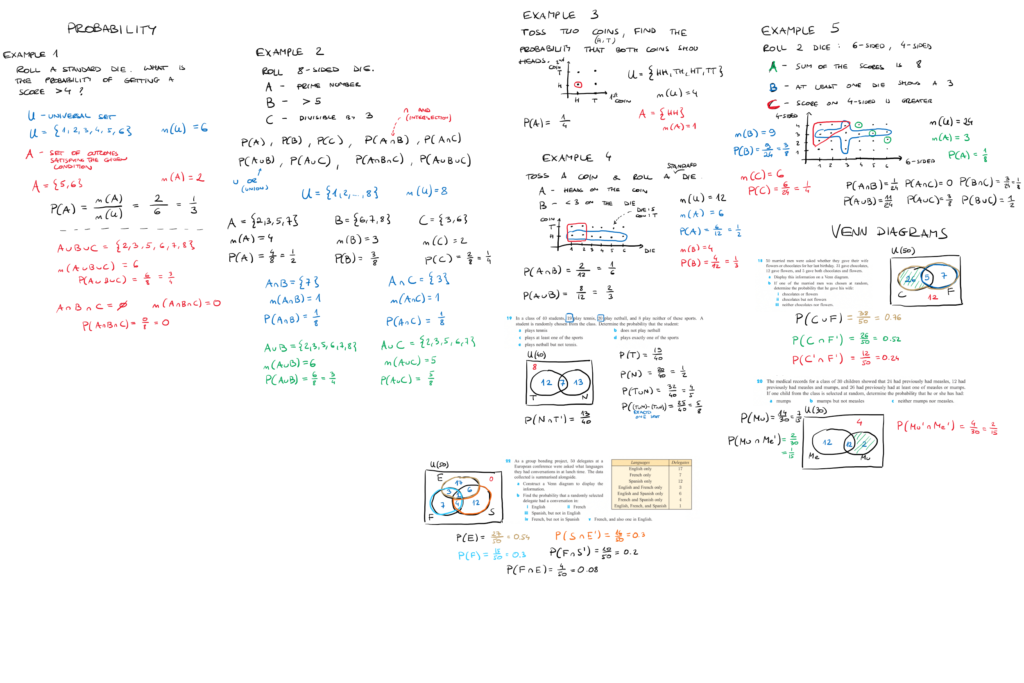 PROBABILITY
EXAMPLE 1
ROLL A STANDARD DIE. WHAT IS
THE PROBABILITY OF GETTING A
SCORE >4 ?
U - UNIVERSAL SET
U = {1, 2, 3, 4, 5, 6} n(U) = 6
A - SET OF OUTCOMES
SATISFYING THE GIVEN
CONDITION
A = {5,6} n(A) = 2
P(A) = n(A)/n(U) = 2/6 = 1/3
A∪B∪C = {2,3,5,6,7,8}
n(A∪B∪C) = 6
P(A∪B∪C) = 6/8 = 3/4
A∩B∩C = ∅ n(A∩B∩C) = 0
P(A∩B∩C) = 0/8 = 0
EXAMPLE 2
ROLL 8-SIDED DIE.
A - PRIME NUMBER
B - > 5
C - DIVISIBLE BY 3
∩ AND
(INTERSECTION)
P(A), P(B), P(C), P(A∩B), P(A∩C)
P(A∪B), P(A∪C), P(A∩B∩C), P(A∪B∪C)
∪ OR
(UNION)
U = {1,2,...,8} n(U) = 8
A = {2,3,5,7} B = {6,7,8} C = {3,6}
n(A) = 4 n(B) = 3 n(C) = 2
P(A) = 4/8 = 1/2 P(B) = 3/8 P(C) = 2/8 = 1/4
A∩B = {7} A∩C = {3}
n(A∩B) = 1 n(A∩C) = 1
P(A∩B) = 1/8 P(A∩C) = 1/8
A∪B = {2,3,5,6,7,8} A∪C = {2,3,5,6,7}
n(A∪B) = 6 n(A∪C) = 5
P(A∪B) = 6/8 = 3/4 P(A∪C) = 5/8
EXAMPLE 3
TOSS TWO COINS, FIND THE
(H,T)
PROBABILITY THAT BOTH COINS SHOW
HEADS.
2nd
COIN
T
H
H T
1st
COIN
U = {HH, TH, HT, TT}
n(U) = 4
A = {HH}
n(A) = 1
P(A) = 1/4
EXAMPLE 4
STANDARD
TOSS A COIN & ROLL A DIE.
A - HEAD ON THE COIN
B - <3 ON THE DIE
COIN
T
H
1 2 3 4 5 6
DIE
DIE: 5
COIN: T
n(U) = 12
n(A) = 6
P(A) = 6/12 = 1/2
n(B) = 4
P(B) = 4/12 = 1/3
P(A∩B) = 2/12 = 1/6
P(A∪B) = 8/12 = 2/3
In a class of 40 students, 19 play tennis, 20 play netball, and 8 play neither of these sports. A
student is randomly chosen from the class. Determine the probability that the student:
a plays tennis b does not play netball
c plays at least one of the sports d plays exactly one of the sports
e plays netball but not tennis.
U(40)
8
12 7 13
T N
P(T) = 19/40
P(N) = 20/40 = 1/2
P(T∪N) = 32/40 = 4/5
P((T∪N)-(T∩N)) = 25/40 = 5/8
EXACTLY
ONE SPORT
P(N∩T') = 13/40
As a group bonding project, 50 delegates at a
European conference were asked what languages
they had conversations in at lunch time. The data
collected is summarised alongside.
a Construct a Venn diagram to display the
information.
b Find the probability that a randomly selected
delegate had a conversation in:
i English ii French
iii Spanish, but not in English
iv French, but not in Spanish v French, and also one in English.
Languages Delegates
English only 17
French only 7
Spanish only 12
English and French only 3
English and Spanish only 6
French and Spanish only 4
English, French, and Spanish 1
U(50)
E 17 0
3 6
1
7 4 12
F S
P(E) = 27/50 = 0.54 P(S∩E') = 16/50 = 0.3
P(F) = 15/50 = 0.3 P(F∩S') = 10/50 = 0.2
P(F∩E) = 4/50 = 0.08
EXAMPLE 5
ROLL 2 DICE : 6-SIDED, 4-SIDED
A - SUM OF THE SCORES IS 8
B - AT LEAST ONE DIE SHOWS A 3
C - SCORE ON 4-SIDED IS GREATER
4-SIDED
4
3
2
1
1 2 3 4 5 6
6-SIDED
n(B) = 9
P(B) = 9/24 = 3/8
n(C) = 6
P(C) = 6/24 = 1/4
n(U) = 24
n(A) = 3
P(A) = 1/8
P(A∩B) = 1/24 P(A∩C) = 0 P(B∩C) = 3/24 = 1/8
P(A∪B) = 11/24 P(A∪C) = 3/8 P(B∪C) = 1/2
VENN DIAGRAMS
50 married men were asked whether they gave their wife
flowers or chocolates for her last birthday. 31 gave chocolates,
12 gave flowers, and 5 gave both chocolates and flowers.
a Display this information on a Venn diagram.
b If one of the married men was chosen at random,
determine the probability that he gave his wife:
i chocolates or flowers
ii chocolates but not flowers
iii neither chocolates nor flowers.
U(50)
26 5 7
C 12 F
P(C∪F) = 38/50 = 0.76
P(C∩F') = 26/50 = 0.52
P(C'∩F') = 12/50 = 0.24
The medical records for a class of 30 children showed that 24 had previously had measles, 12 had
previously had measles and mumps, and 26 had previously had at least one of measles or mumps.
If one child from the class is selected at random, determine the probability that he or she has had:
a mumps b mumps but not measles c neither mumps nor measles.
U(30)
4
12 12 2
Me Mu
P(Mu) = 14/30 = 7/15
P(Mu∩Me') = 2/30
= 1/15
P(Mu'∩Me') = 4/30 = 2/15